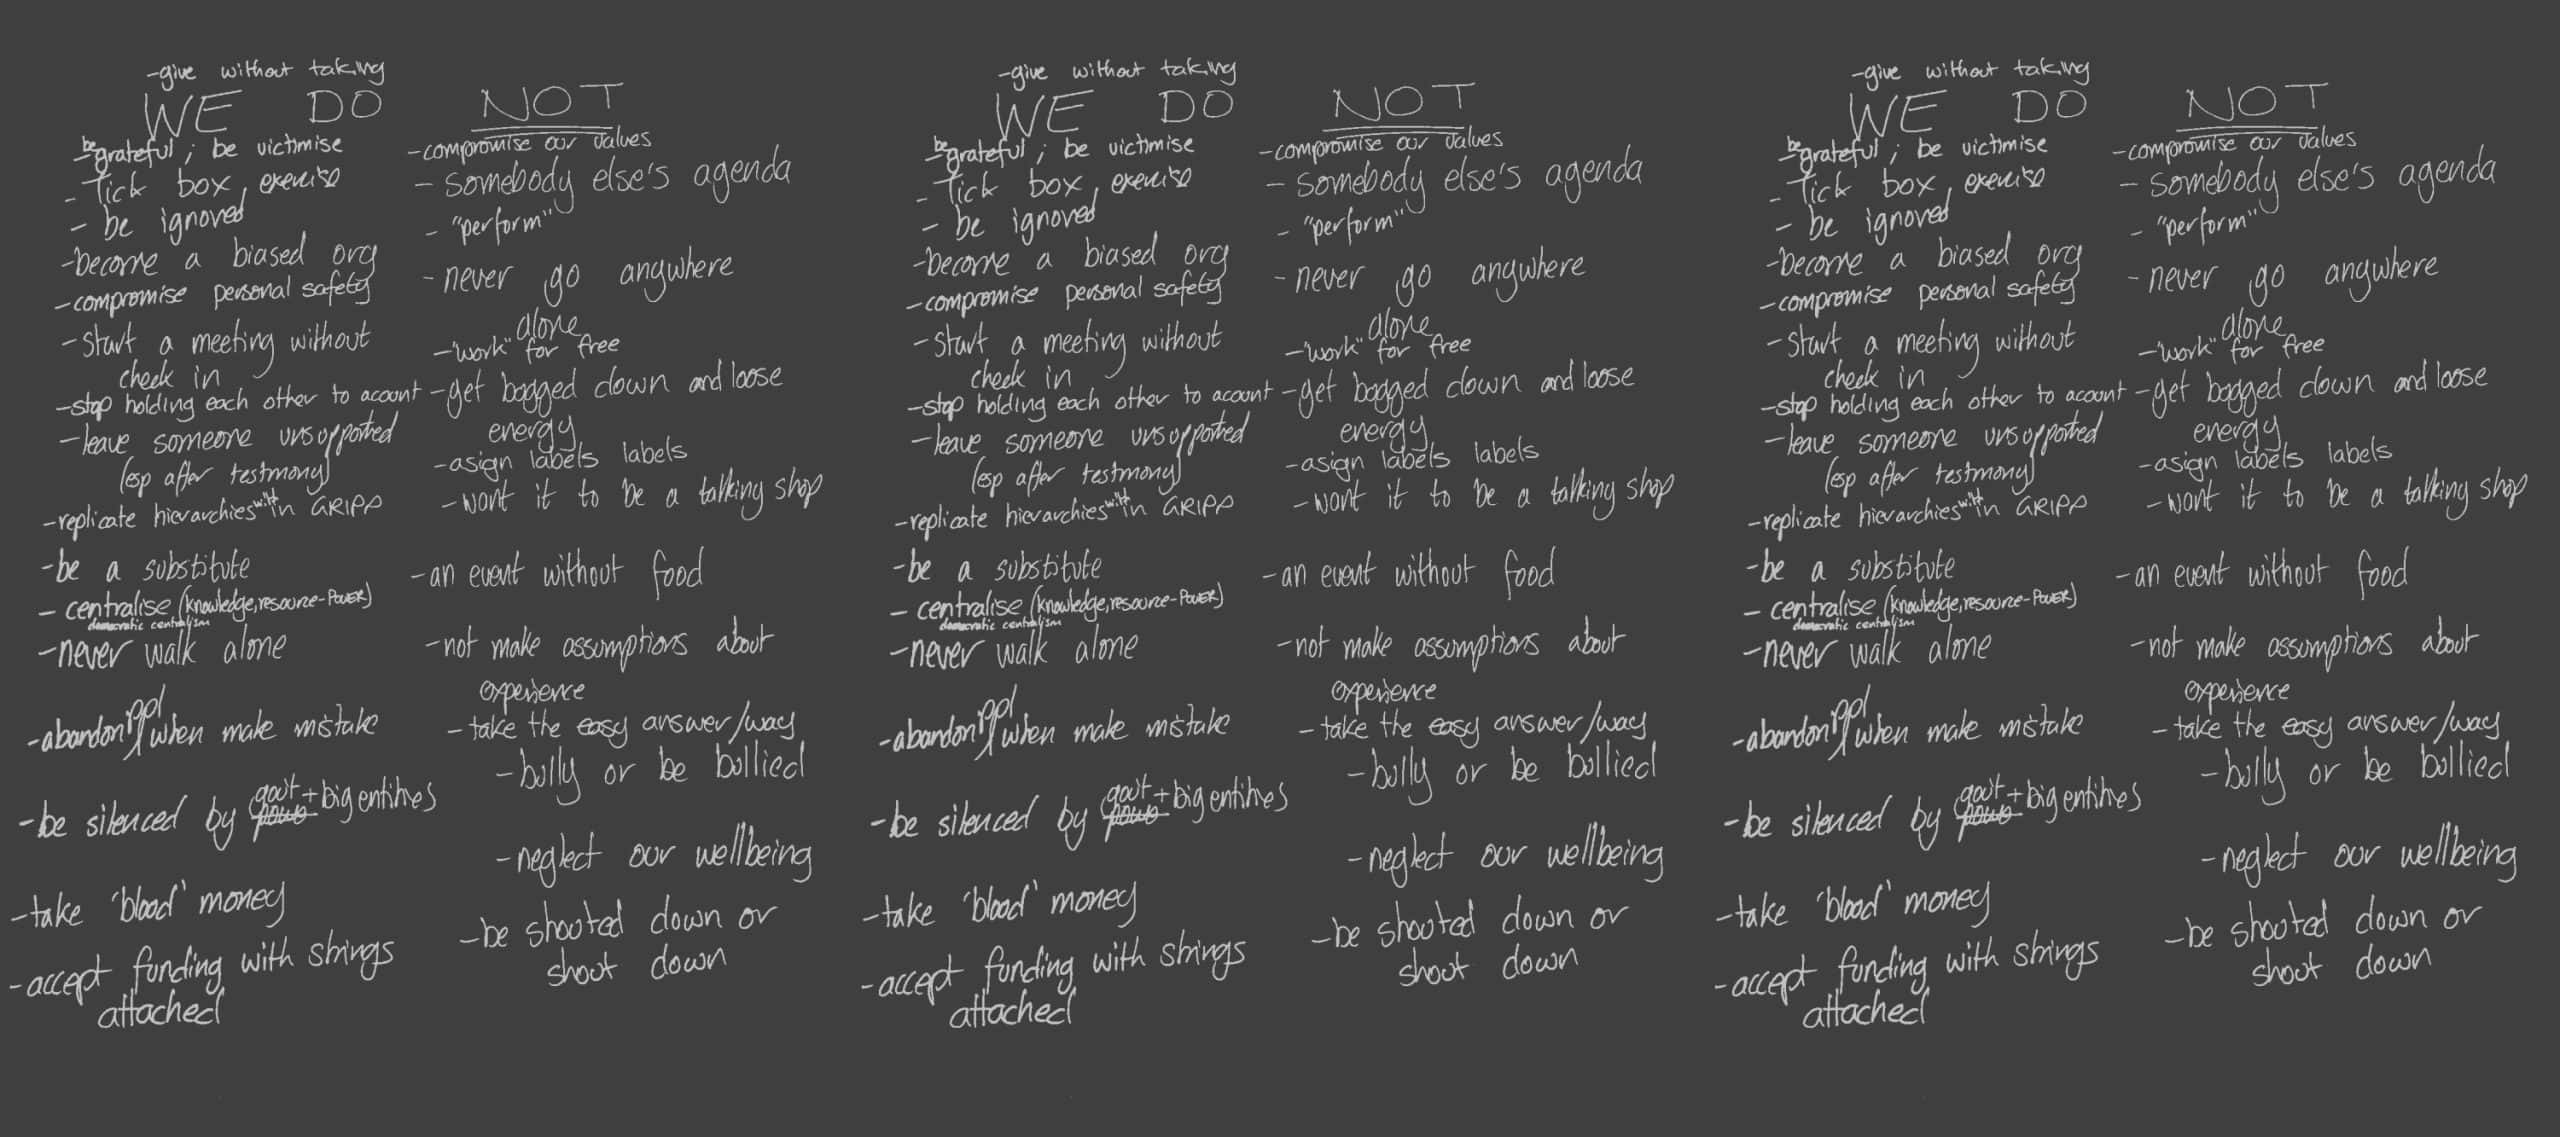 -give without taking
WE DO NOT
-be grateful; be victimise
- Tick box, exercise
- be ignored
-become a biased org
-compromise personal safety
-start a meeting without
check in
-stop holding each other to acount
-leave someone unsopported
(esp after testmony)
-replicate hierarchies within GRIPP
-be a substitute
- centralise (knowledge, resource-POWER)
democratic centralism
-never walk alone
-abandon ppl when make mistake
-be silenced by govt + big entities
-take 'blood' money
-accept funding with strings
attached
-compromise our values
- somebody else's agenda
- "perform"
- never go anywhere
alone
-"work" for free
-get bogged down and loose
energy
-asign labels labels
-want it to be a talking shop
-an event without food
-not make assumptions about
experience
-take the easy answer/way
-bully or be bullied
-neglect our wellbeing
-be shouted down or
shout down
-give without taking
WE DO NOT
-be grateful; be victimise
- Tick box, exercise
- be ignored
-become a biased org
-compromise personal safety
-start a meeting without
check in
-stop holding each other to acount
-leave someone unsopported
(esp after testmony)
-replicate hierarchies within GRIPP
-be a substitute
- centralise (knowledge, resource-POWER)
democratic centralism
-never walk alone
-abandon ppl when make mistake
-be silenced by govt + big entities
-take 'blood' money
-accept funding with strings
attached
-compromise our values
- somebody else's agenda
- "perform"
- never go anywhere
alone
-"work" for free
-get bogged down and loose
energy
-asign labels labels
-want it to be a talking shop
-an event without food
-not make assumptions about
experience
-take the easy answer/way
-bully or be bullied
-neglect our wellbeing
-be shouted down or
shout down
-give without taking
WE DO NOT
-be grateful; be victimise
- Tick box, exercise
- be ignored
-become a biased org
-compromise personal safety
-start a meeting without
check in
-stop holding each other to acount
-leave someone unsopported
(esp after testmony)
-replicate hierarchies within GRIPP
-be a substitute
- centralise (knowledge, resource-POWER)
democratic centralism
-never walk alone
-abandon ppl when make mistake
-be silenced by govt + big entities
-take 'blood' money
-accept funding with strings
attached
-compromise our values
- somebody else's agenda
- "perform"
- never go anywhere
alone
-"work" for free
-get bogged down and loose
energy
-asign labels labels
-want it to be a talking shop
-an event without food
-not make assumptions about
experience
-take the easy answer/way
-bully or be bullied
-neglect our wellbeing
-be shouted down or
shout down